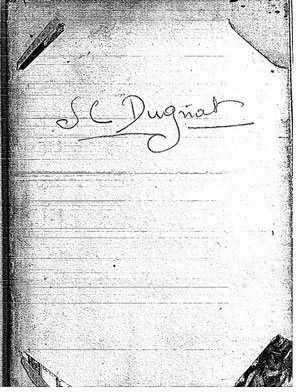 SC Dugnat